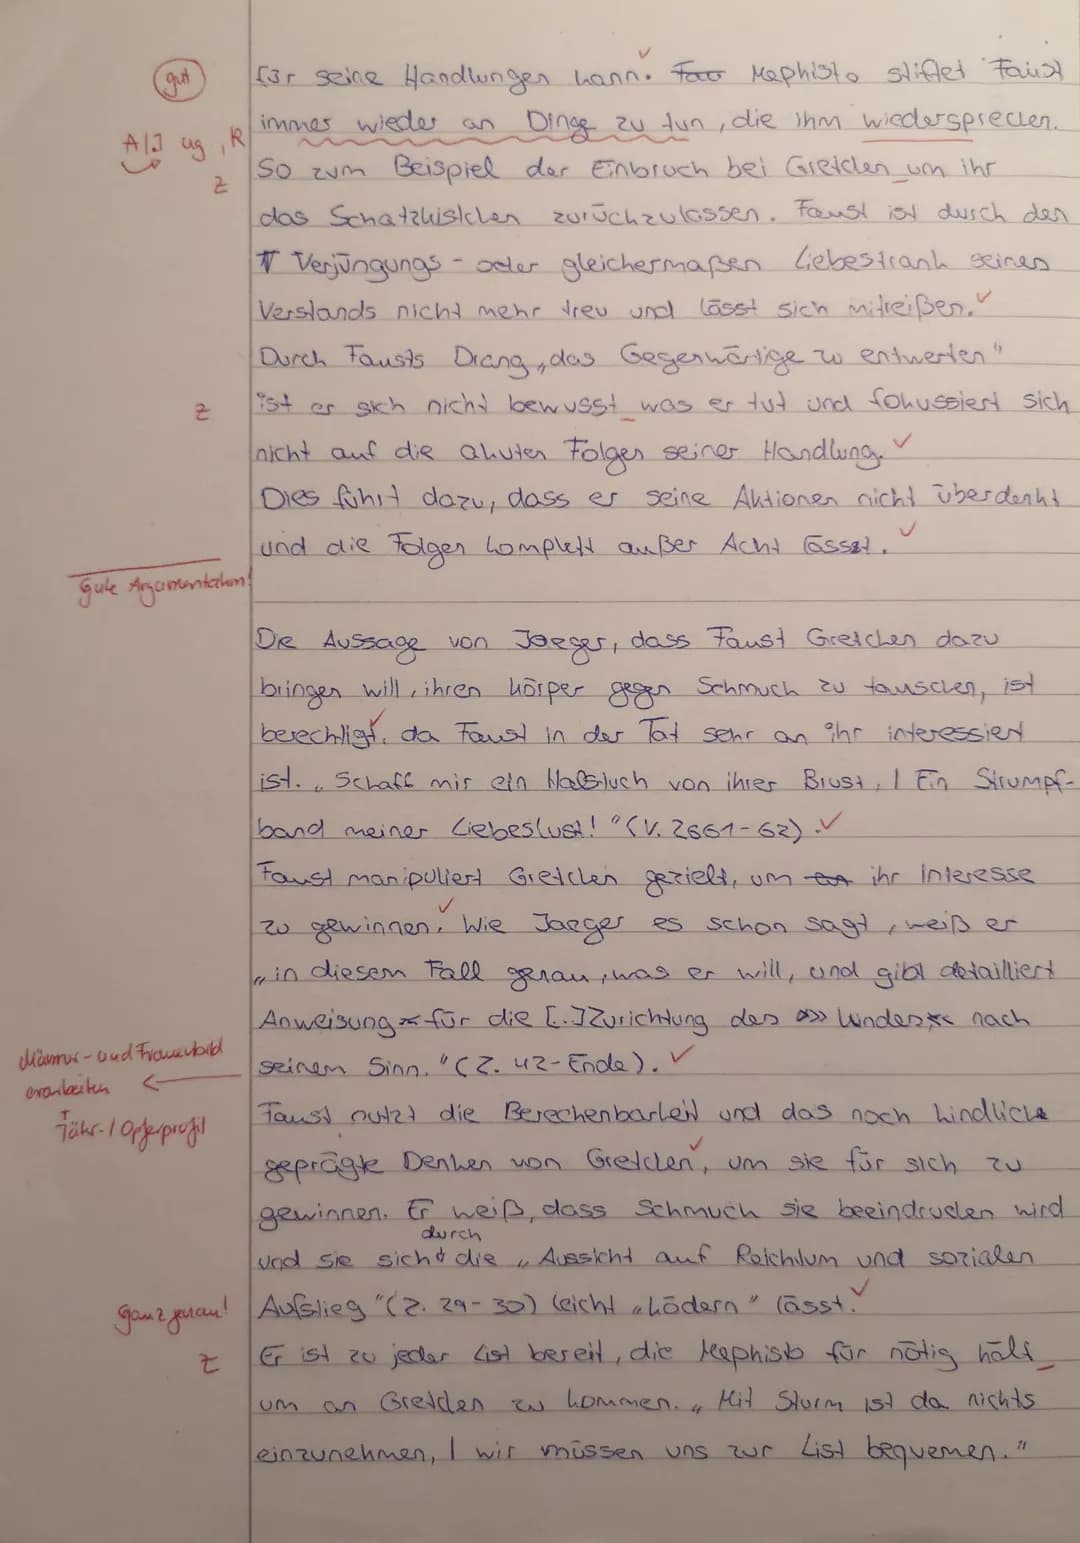 gut
für seine Handlungen kann. Mephisto stiftet Faust
A/I ug, R
immer wieder an Dinge zu tun, die ihm wiedersprechen.
Z
So zum Beispiel der Einbruch bei Gretchen um ihr
das Schatzkistchen zurückzulassen. Faust ist durch den
Verjüngungs- oder gleichermaßen Liebestrank seines
Verstands nicht mehr treu und lässt sich mitreißen.
Durch Fausts Drang „das Gegenwärtige zu entwerten"
Z
ist er sich nicht bewusst was er tut und fokussiert sich
nicht auf die akuten Folgen seiner Handlung.
Dies führt dazu, dass er seine Aktionen nicht überdenkt
und die Folgen komplett außer Acht lässt.
Gute Argumentation!
Die Aussage von Jaeger, dass Faust Gretchen dazu
bringen will, ihren Körper gegen Schmuck zu tauschen, ist
berechtigt, da Faust in der Tat sehr an ihr interessiert
ist. „Schaff mir ein Halstuch von ihrer Brust, / Ein Strumpf-
band meiner Liebeslust!" (V. 2661-62).
Faust manipuliert Gretchen gezielt, um ihr Interesse
zu gewinnen. Wie Jaeger es schon sagt, weiß er
„in diesem Fall genau, was er will, und gibt detailliert
Anweisung für die [..] Zurichtung des >> Kindes << nach
seinem Sinn." (Z. 42-Ende).
Männer- und Frauenbild
erarbeiten
Täter-/Opferprofil
Faust nutzt die Berechenbarkeit und das noch kindliche
geprägte Denken von Gretchen, um sie für sich zu
gewinnen. Er weiß, dass Schmuck sie beeindrucken wird
durch
und sie sich die „Aussicht auf Reichtum und sozialen
Ganz genau!
Aufstieg" (Z. 29-30) leicht „ködern" lässt.
Z
Er ist zu jeder List bereit, die Mephisto für nötig hält
um an Gretchen zu kommen. „Mit Sturm ist da nichts
einzunehmen, / wir müssen uns zur List bequemen."